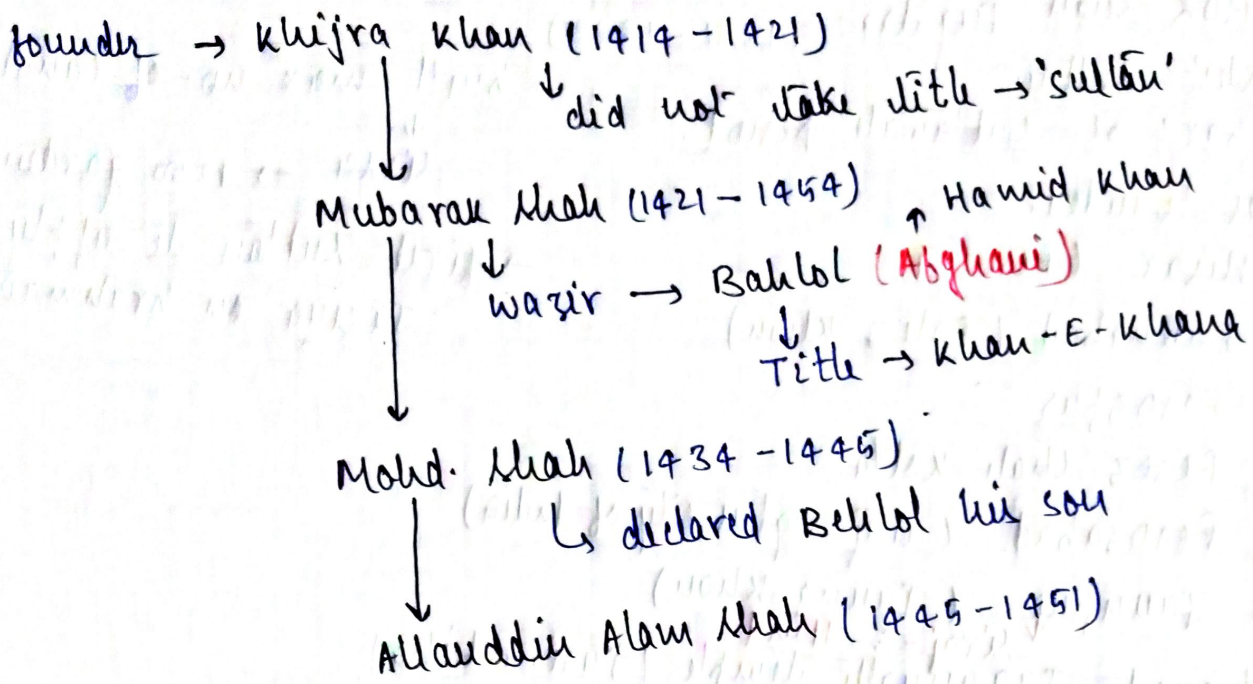 founder → Khijra Khan (1414 - 1421)
↓ did not take title → 'sultan'
Mubarak Shah (1421 - 1454)
↑ Hamid Khan
↓ wazir → Bahlol (Afghani)
↓ Title → Khan-E-Khana
Mohd. Shah (1434 - 1445)
↳ declared Behlol his son
Allauddin Alam Shah (1445 - 1451)